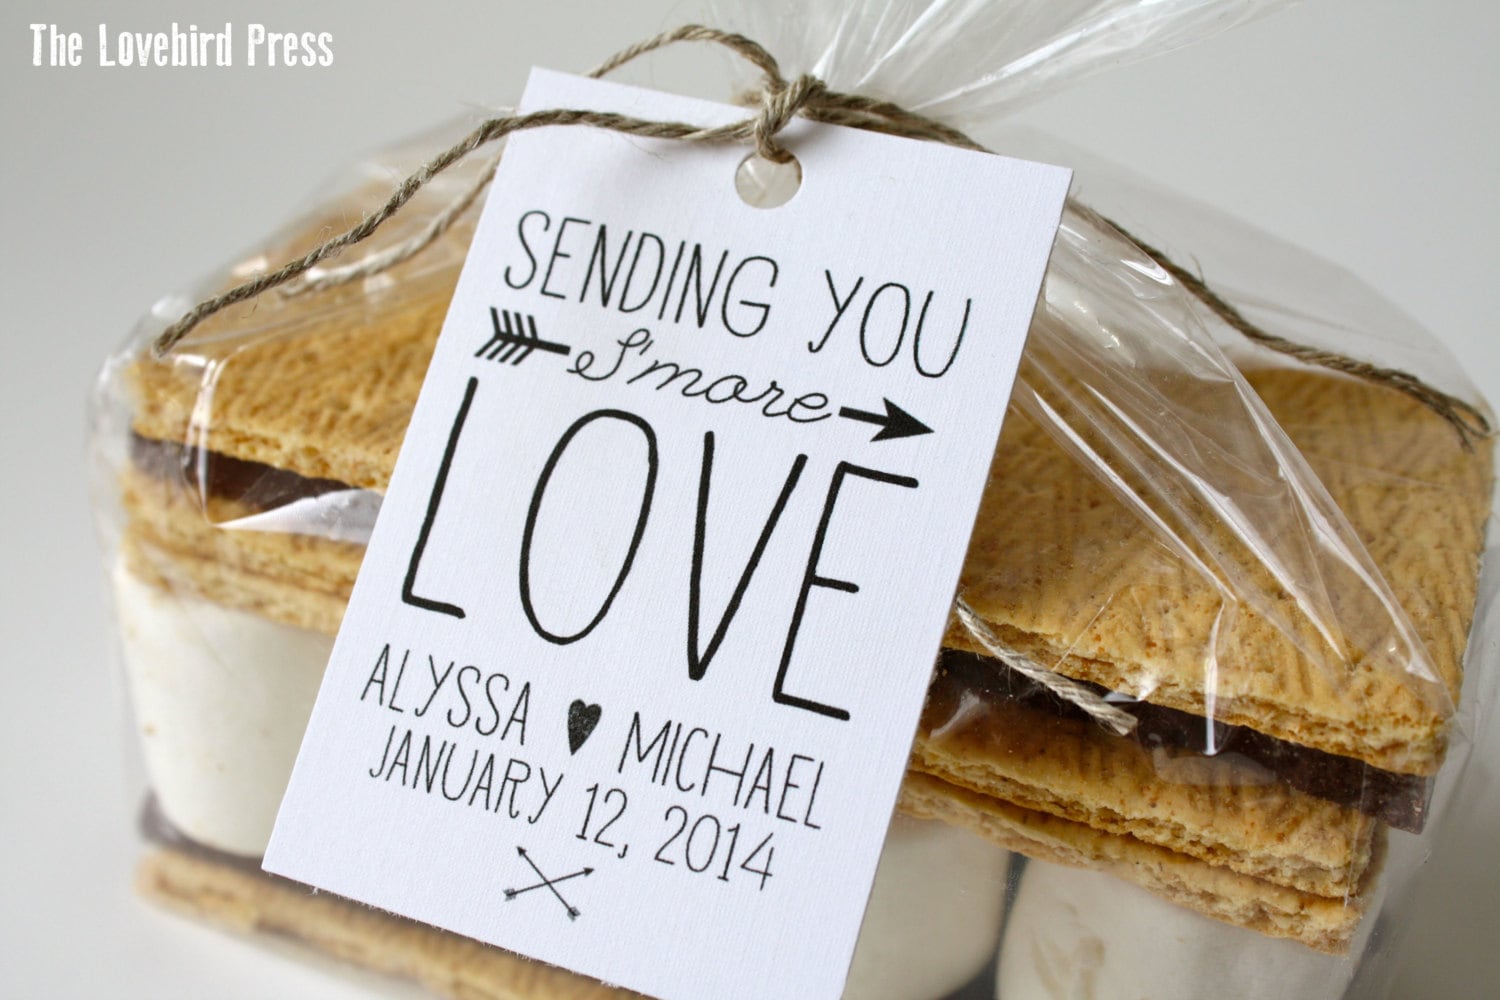 The Lovebird Press
SENDING YOU
S'more
LOVE
ALYSSA ♥ MICHAEL
JANUARY 12, 2014